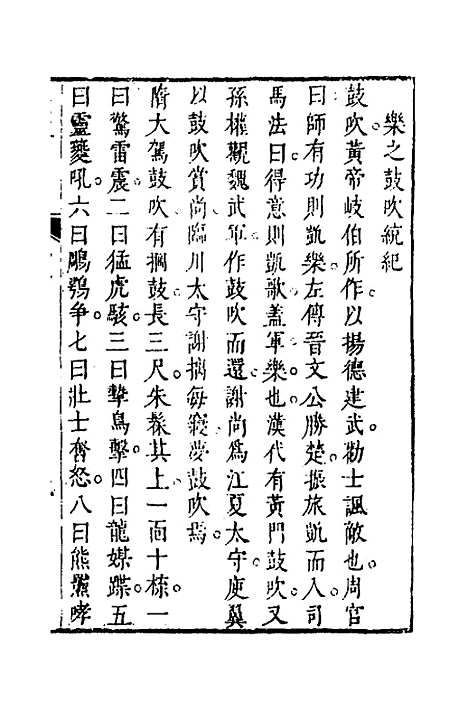 樂之鼓吹統紀
鼓吹黃帝岐伯所作以揚德建武勸士諷敵也。周官
曰師有功則凱樂。左傳晉文公勝楚振旅凱而入。司
馬法曰得意則凱歌。蓋軍樂也。漢代有黃門鼓吹。又
孫權觀魏武軍作鼓吹而還。謝尚爲江夏太守。庾翼
以鼓吹賞尚。臨川太守謝摛每寢夢鼓吹焉。
隋大駕鼓吹有掆鼓。長三尺。朱髹其上。一面十椽。一
曰驚雷震。二曰猛虎駭。三曰鷙鳥擊。四曰龍媒蹀。五
曰靈夔吼。六曰鵰鶚争。七曰壯士奮怒。八曰熊羆哮